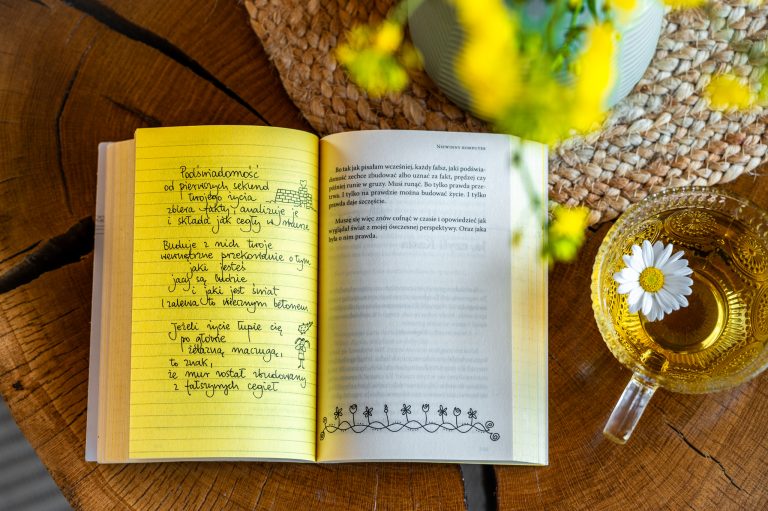 Podświadomość
od pierwszych sekund
twojego życia
zbiera fakty, analizuje je
i składa jak cegły w murze
Buduje z nich twoje
wewnętrzne przekonanie o tym
jaki jesteś
jacy są ludzie
i jaki jest świat
I zalewa to wiecznym betonem
Jeżeli życie łupie cię
po głowie
żelazną maczugą,
to znak,
że mur został zbudowany
z fałszywych cegieł
Niewinny komputer
Bo tak jak pisałam wcześniej, każdy fałsz, jaki podświa-
domość zechce zbudować albo uznać za fakt, prędzej czy
później runie w gruzy. Musi runąć. Bo tylko prawda prze-
trwa. I tylko na prawdzie można budować życie. I tylko
prawda daje szczęście.
Muszę się więc znów cofnąć w czasie i opowiedzieć jak
wyglądał świat z mojej ówczesnej perspektywy. Oraz jaka
była o nim prawda.